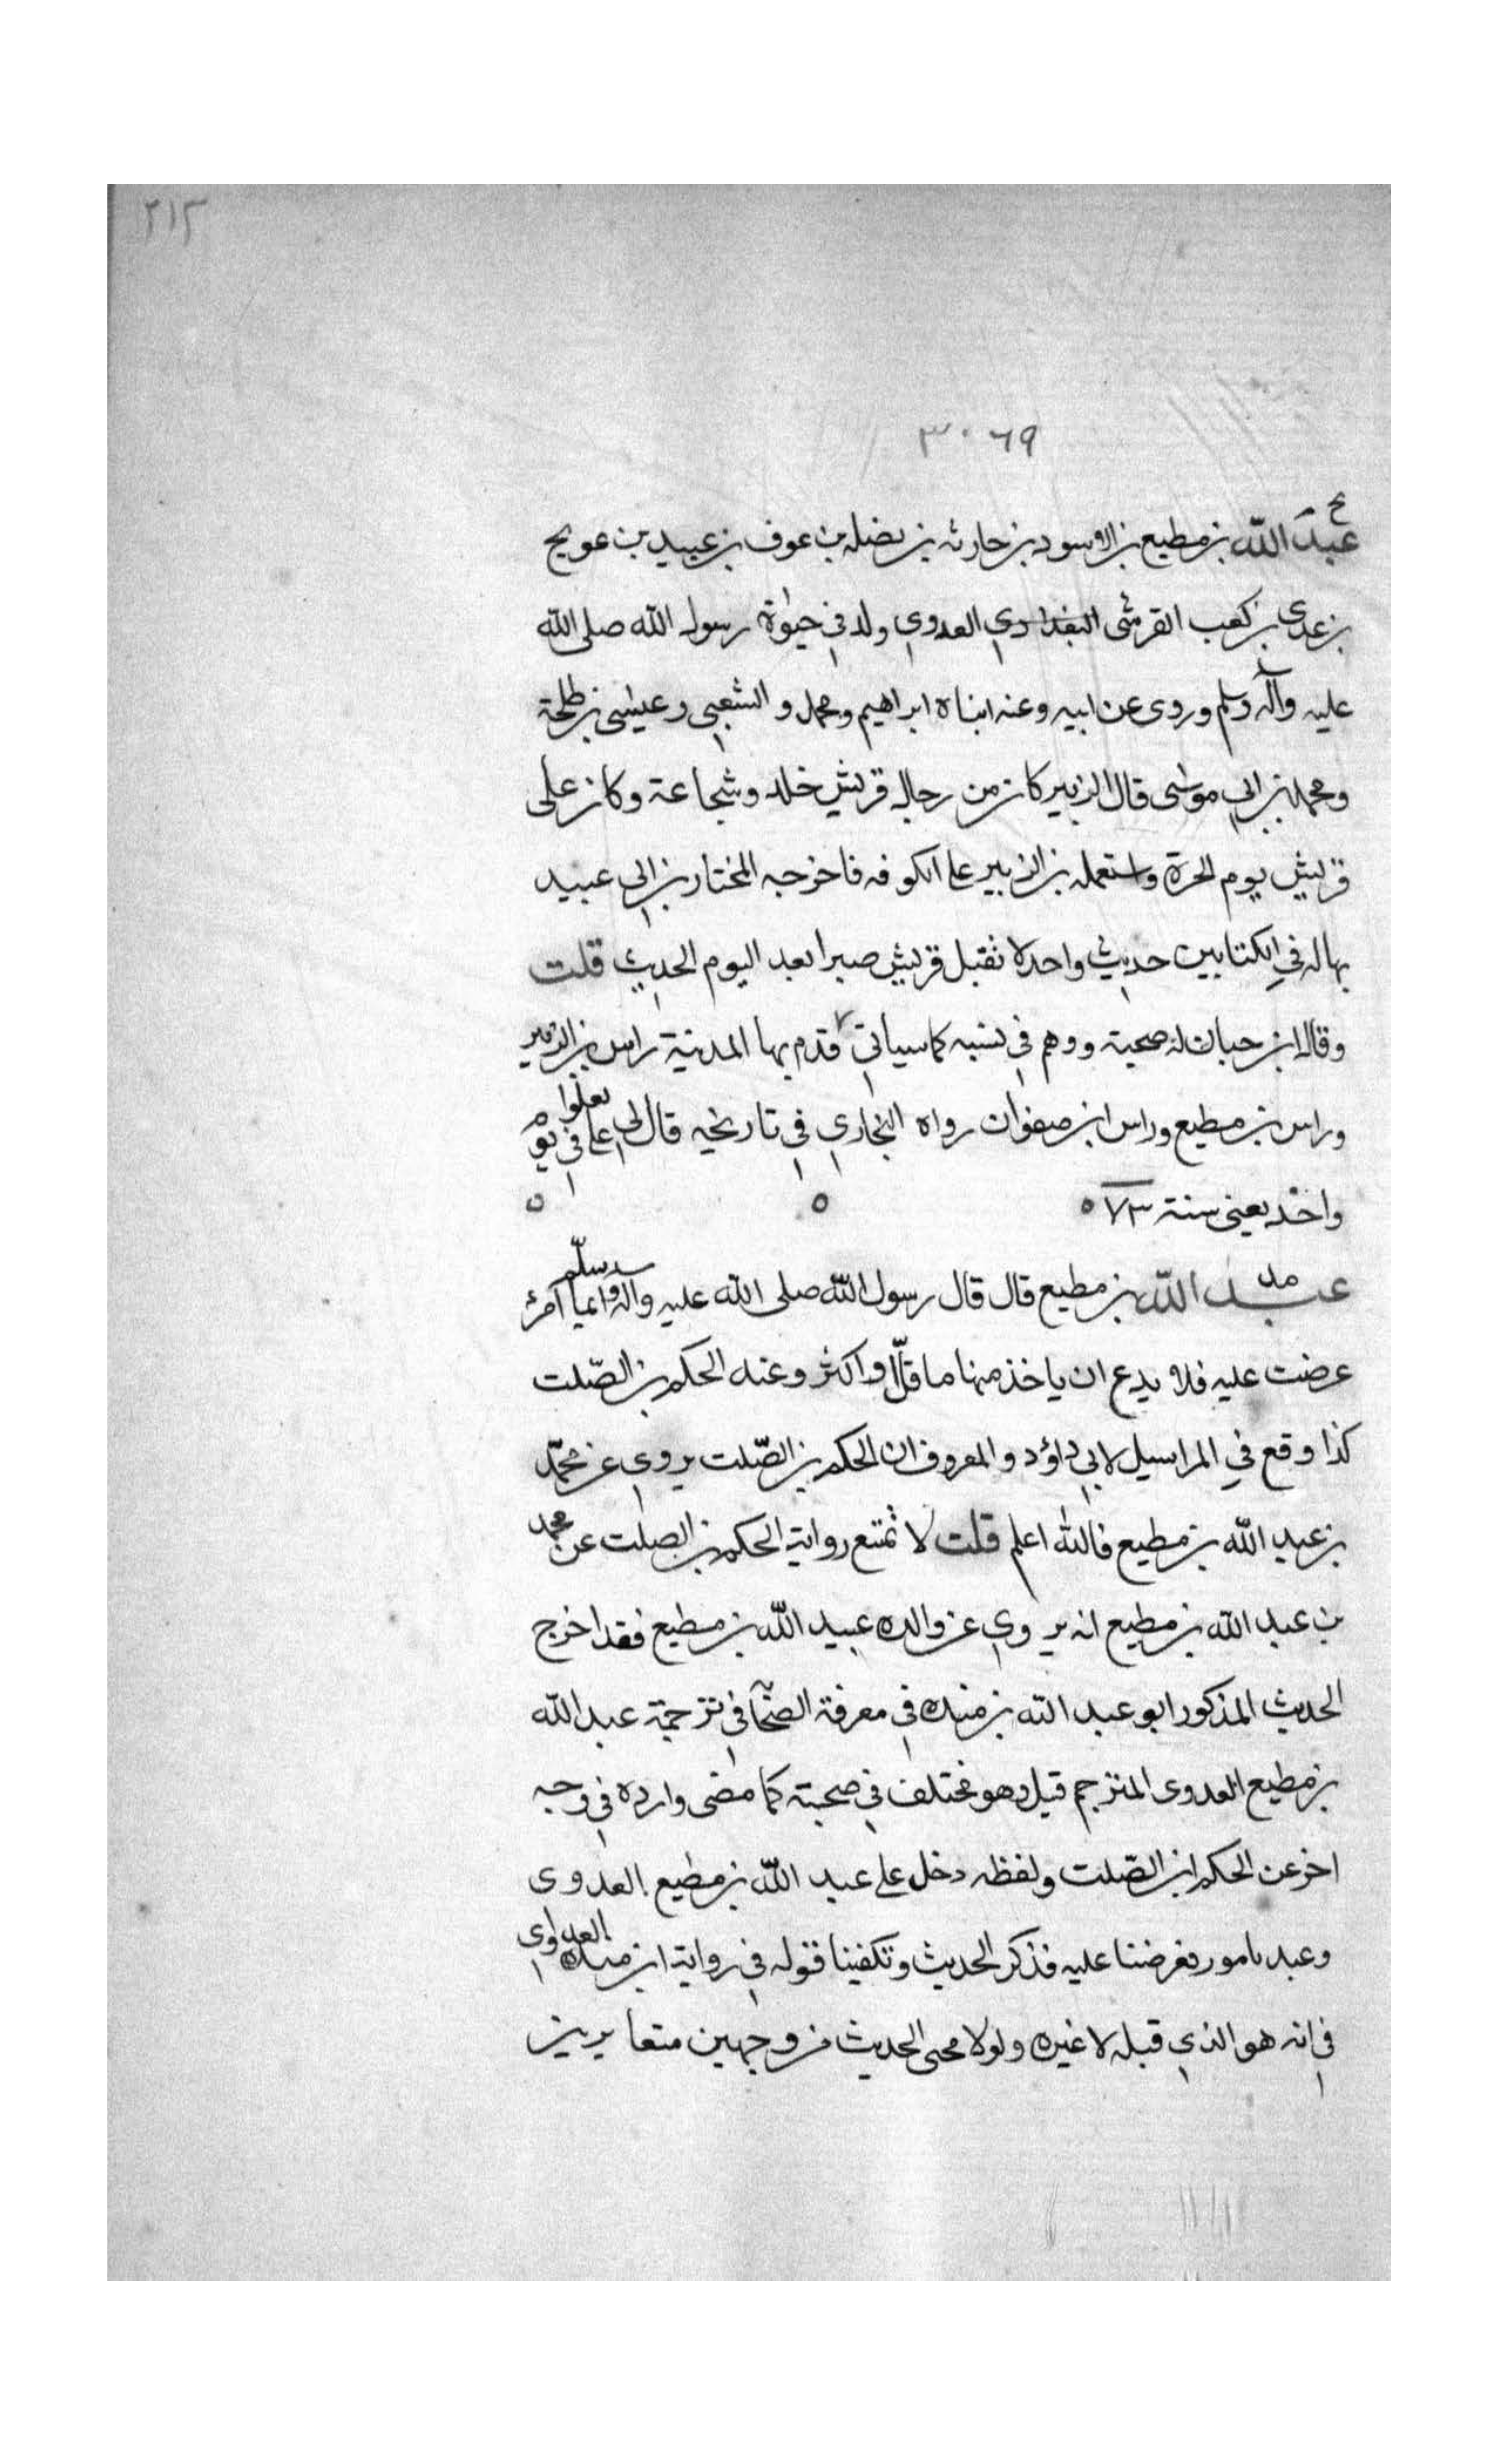 ٢١٢
٣٠٦٩
بخ
عبد الله بن مطيع بن الاسود بن حارثه بن نضله بن عوف بن عبيد بن عويج
بن عدى بن كعب القرشى البغدادي العدوي ولد في حيوة رسول الله صلى الله
عليه وآله وسلم وروى عن ابيه وعنه ابناه ابراهيم ومحمد والشعبي وعيسى بن طلحة
ومحمد بن ابي موسى قال الزبير كان من رجال قريش جلد وشجاعة وكان على
قريش يوم الحرة واستعمله بن الزبير على الكوفه فاخرجه المختار بن ابي عبيد
بها له في الكتابين حديث واحد لا تقبل قريش صبرا بعد اليوم الحديث قلت
وقال ابن حبان له صحبة ووهم في نسبه كما سياتي قدم بها المدنية راس بن الزبير
وراس بن مطيع وراس ابن صفوان رواه البخاري في تاريخه قال لي على في
واخد يعنى سنة ٧٣ ه
عبد الله بن مطيع قال قال رسول الله صلى الله عليه وآله وسلم ايما امرئ
عرضت عليه فلا يدع ان ياخذ منها ما قل او اكثر وعنه الحكم بن الصّلت
كذا وقع في المراسيل لابي داؤد والمعروف ان الحكم بن الصّلت يروي عن محمّد
بن عبد الله بن مطيع فالله اعلم قلت لا تمتنع رواية الحكم بن الصلت عن محمد
بن عبد الله بن مطيع انه يروي عن والده عبد الله بن مطيع فقد اخرج
الحديث المذكور ابو عبد الله بن منده في معرفة الصحا في ترجمة عبد الله
بن مطيع العدوى المترجم قبل وهو مختلف في صحبته كما مضى وارده في وجه
اخر عن الحكم ابن الصّلت ولفظه دخل على عبد الله بن مطيع العدوى
وعبد نامور فعرضنا عليه فذكر الحديث وتكفينا قوله في رواية ابن منده العدوي
في انه هو الذي قبله لا غيره ولولا مجى الحديث من وجهين متغايرين